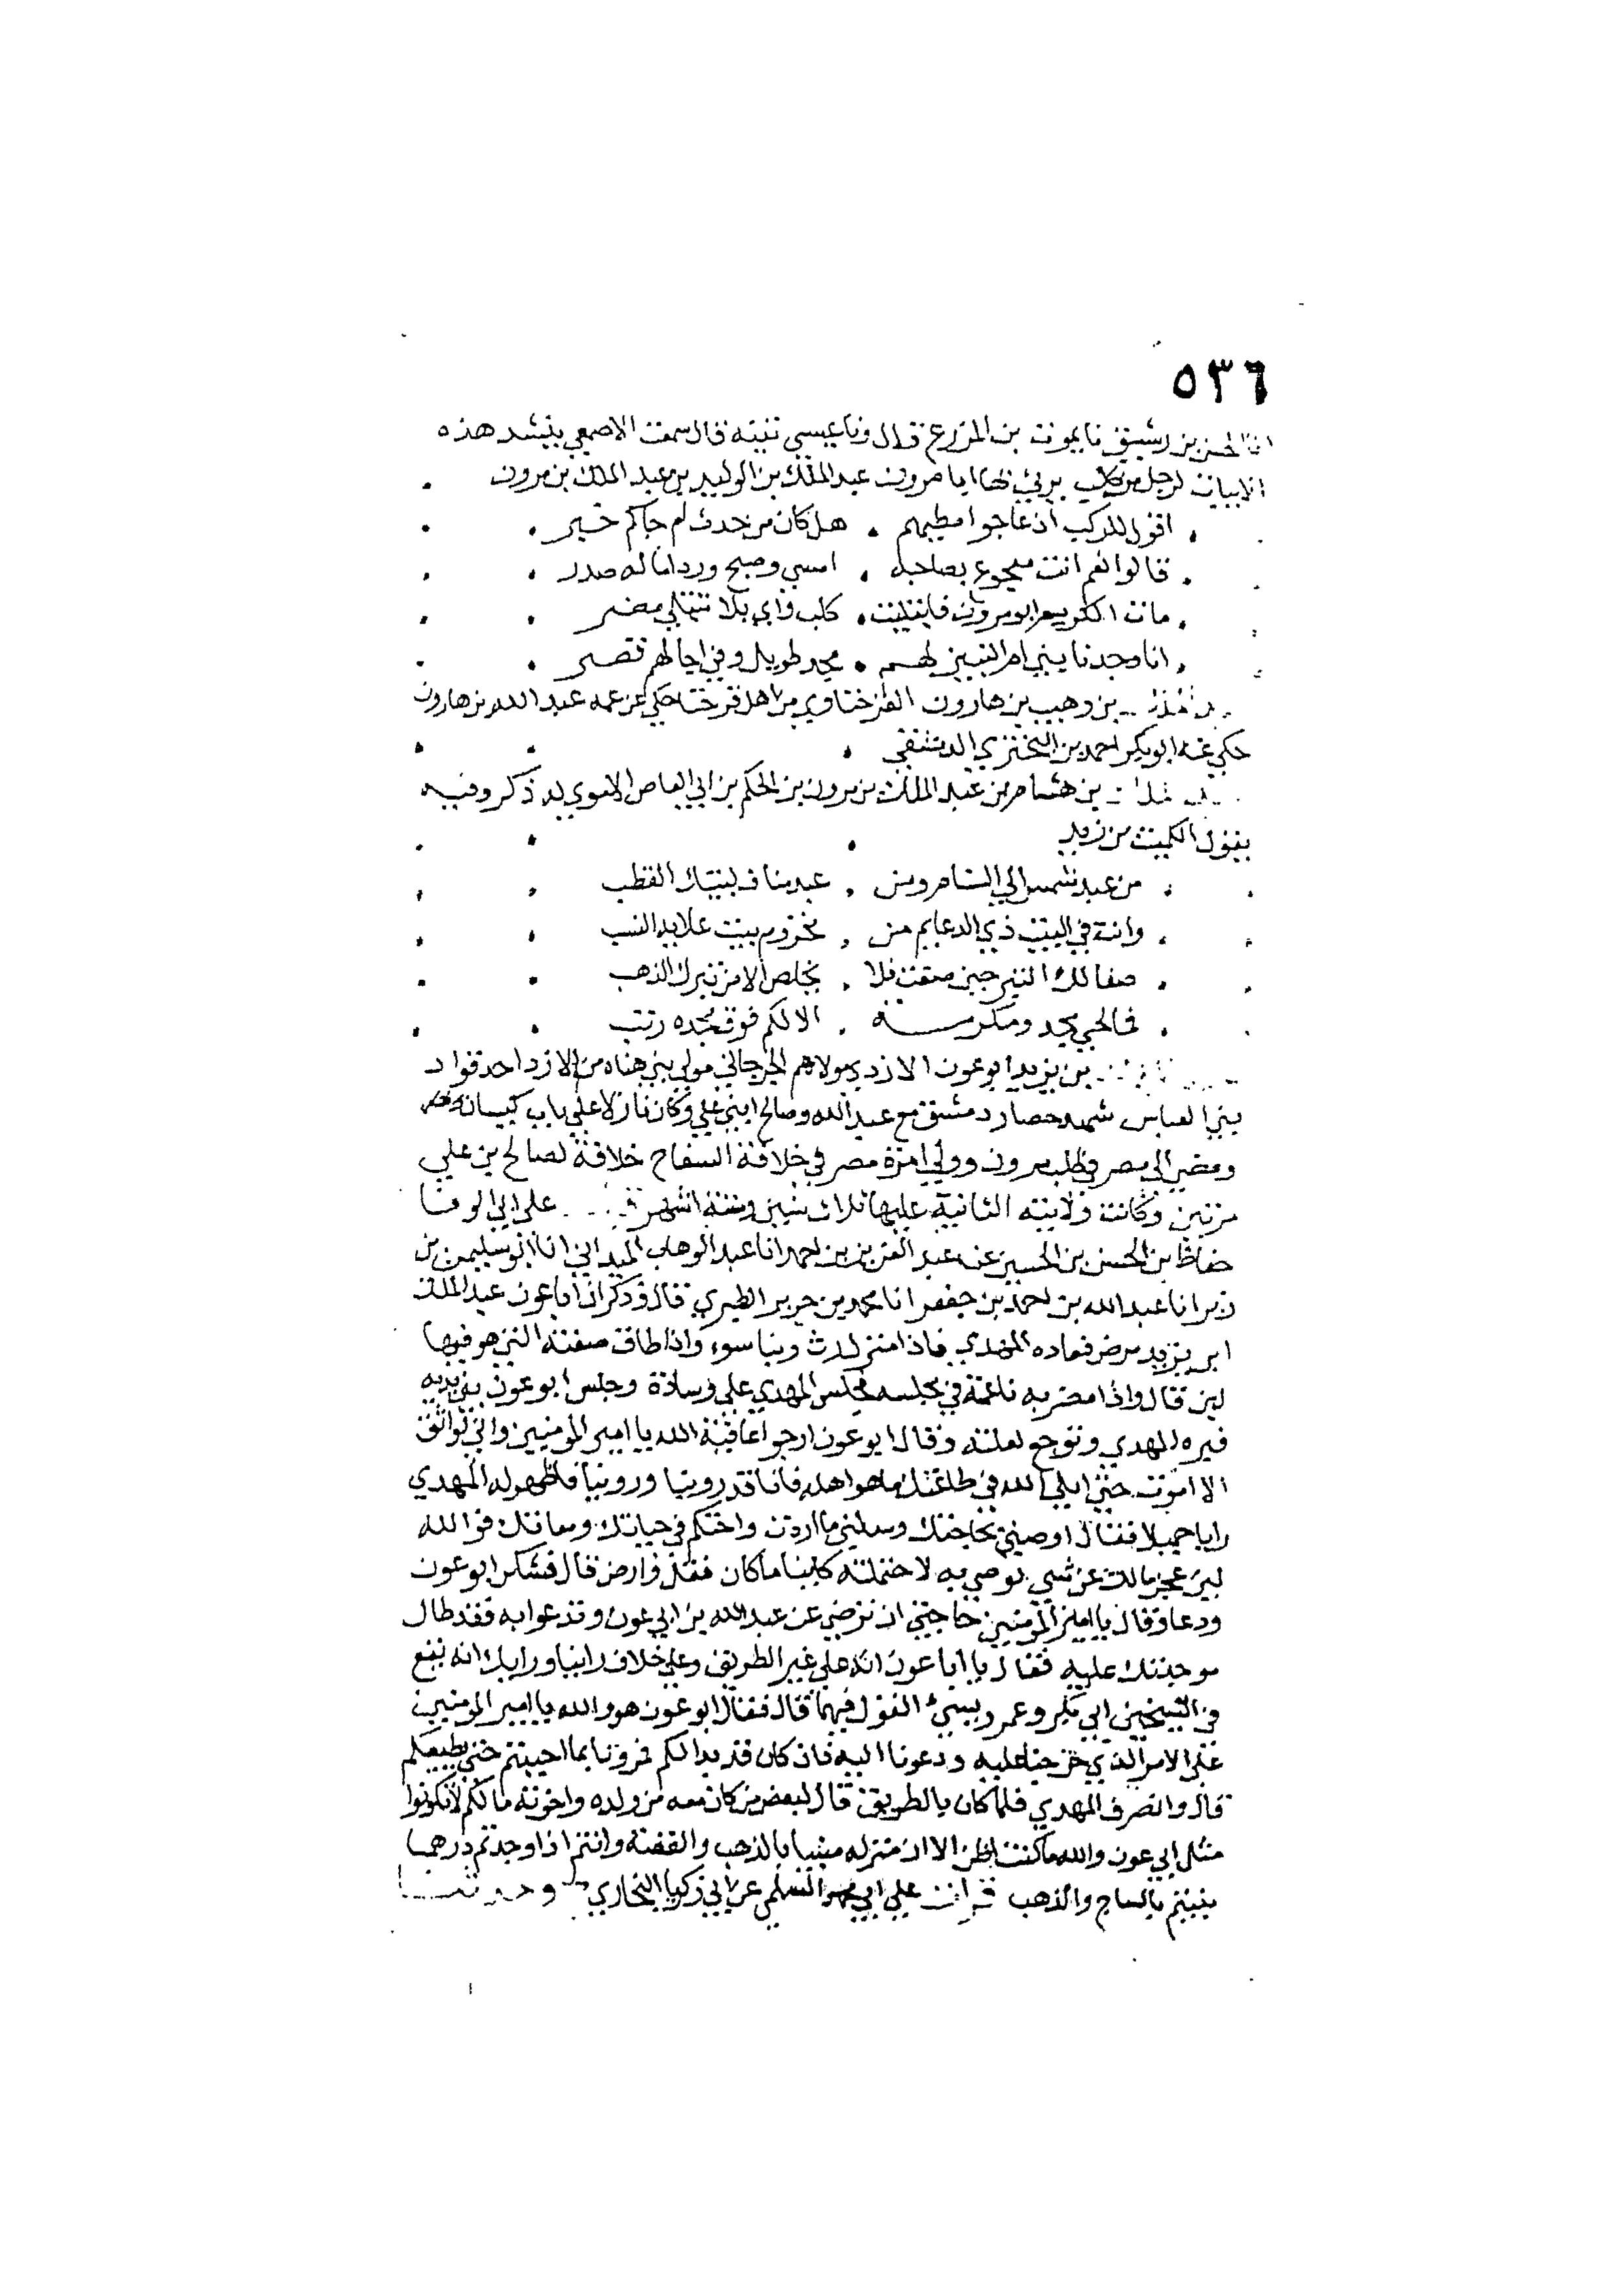 ٥٣٦
انا الحسن بن رشيق نا يموت بن المزرع قال ونا عيسى تينه قال سمعت الاصمعي ينشد هذه
الابيات لرجل من كلب يرثي بها ابا مرون عبد الملك بن الوليد بن عبد الملك بن مرون
اقول للركب اذ عاجوا مطيهم . هل كان من حدث ام جاكم خبر
قالوا نعم انت مفجوع بصاحبه . امسى وصبح وردا ما له صدر
مات الكريم ابو مرون فابتليت . كلب واي بلا تبتلي مضر
انا وجدنا بني ام البنين لهم . مجد طويل وفي اجالهم قصر
بن وهيب بن هارون القرختاوي من اهل قرختا حكي عن عمه عبد الله بن هارون
حكي عنه ابو بكر احمد بن البختري الدمشقي
بن هشام بن عبد الملك بن مرون بن الحكم بن ابي العاص الاموي له ذكر وفيه
يقول الكميت بن زيد
من عبد شمس الي السنام ومن . عبد مناف لبيتك القطب
وانت في البيت ذي الدعايم من . مخزوم بيت علا به النسب
صفا لك التبر حين صفت فلا . يخلص الا من تبرك الذهب
في الحي مجد ومكرمة . الا لكم فوق مجده رتب
بن يزيد ابو عون الازدي مولاهم الجرجاني مولي بني هناه من الازد احد قواد
بني العباس شهد حصار دمشق مع عبد الله وصالح ابني علي وكان نازلا علي باب كيسان
ومضي الي مصر في طلب مرون وولي امرة مصر في خلافة السفاح خلافة لصالح بن علي
مرتين وكانت ولايته الثانية عليها ثلاث سنين وستة اشهر علي ابي الوفا
حفاظ بن الحسن بن الحسين عن عبد العزيز بن احمد انا عبد الوهاب الميداني انا ابو سليمن بن
زبر انا عبد الله بن احمد بن جعفر انا محمد بن جرير الطبري قال وذكر ان ابا عون عبد الملك
ابن يزيد مرض فعاده المهدي فاذا منزل رث وبنا سوء واذا طاق صفته التي هو فيها
لبن قال واذا مضربه ناعمة في مجلسه فجلس المهدي علي وسادة وجلس ابو عون بين يديه
فبره المهدي وتوجع لعلته وقال ابو عون ارجوا عافية الله يا امير المومنين واني لواثق
الا اموت حتي ابلي لله في طاعتك ما هو اهله فانا قد روينا وروينا فاظهر له المهدي
رايا جميلا فقال اوصيني بحاجتك وسلني ما اردت واحتكم في حياتك ومماتك فوالله
لين عجز مالك عن شي توصي به لاحتملته كاينا ما كان فقل وارض قال فشكر ابو عون
ودعا وقال يا امير المومنين حاجتي ان ترضي عن عبد الله بن ابي عون وتدعوا به فقد طال
موجدتك عليه فقال يا ابا عون انه علي غير الطريق وعلي خلاف راينا ورايك انه يقع
في الشيخين ابي بكر وعمر ويسيء القول فيهما قال فقال ابو عون هو والله يا امير المومنين
علي الامر الذي خرجنا عليه ودعونا اليه فان كان قد بدا لكم فمرونا بما احببتم حتي نطيعكم
قال وانصرف المهدي فلما كان بالطريق قال لبعض من كان معه من ولده واخوته ما لكم لا تكونوا
مثل ابي عون والله ما كنت اظن الا ان منزله مبنيا بالذهب والفضة وانتم اذا وجدتم درهما
بنيتم بالساج والذهب قرات علي ابي محمد السلمي عن ابي زكريا البخاري وحدثنا